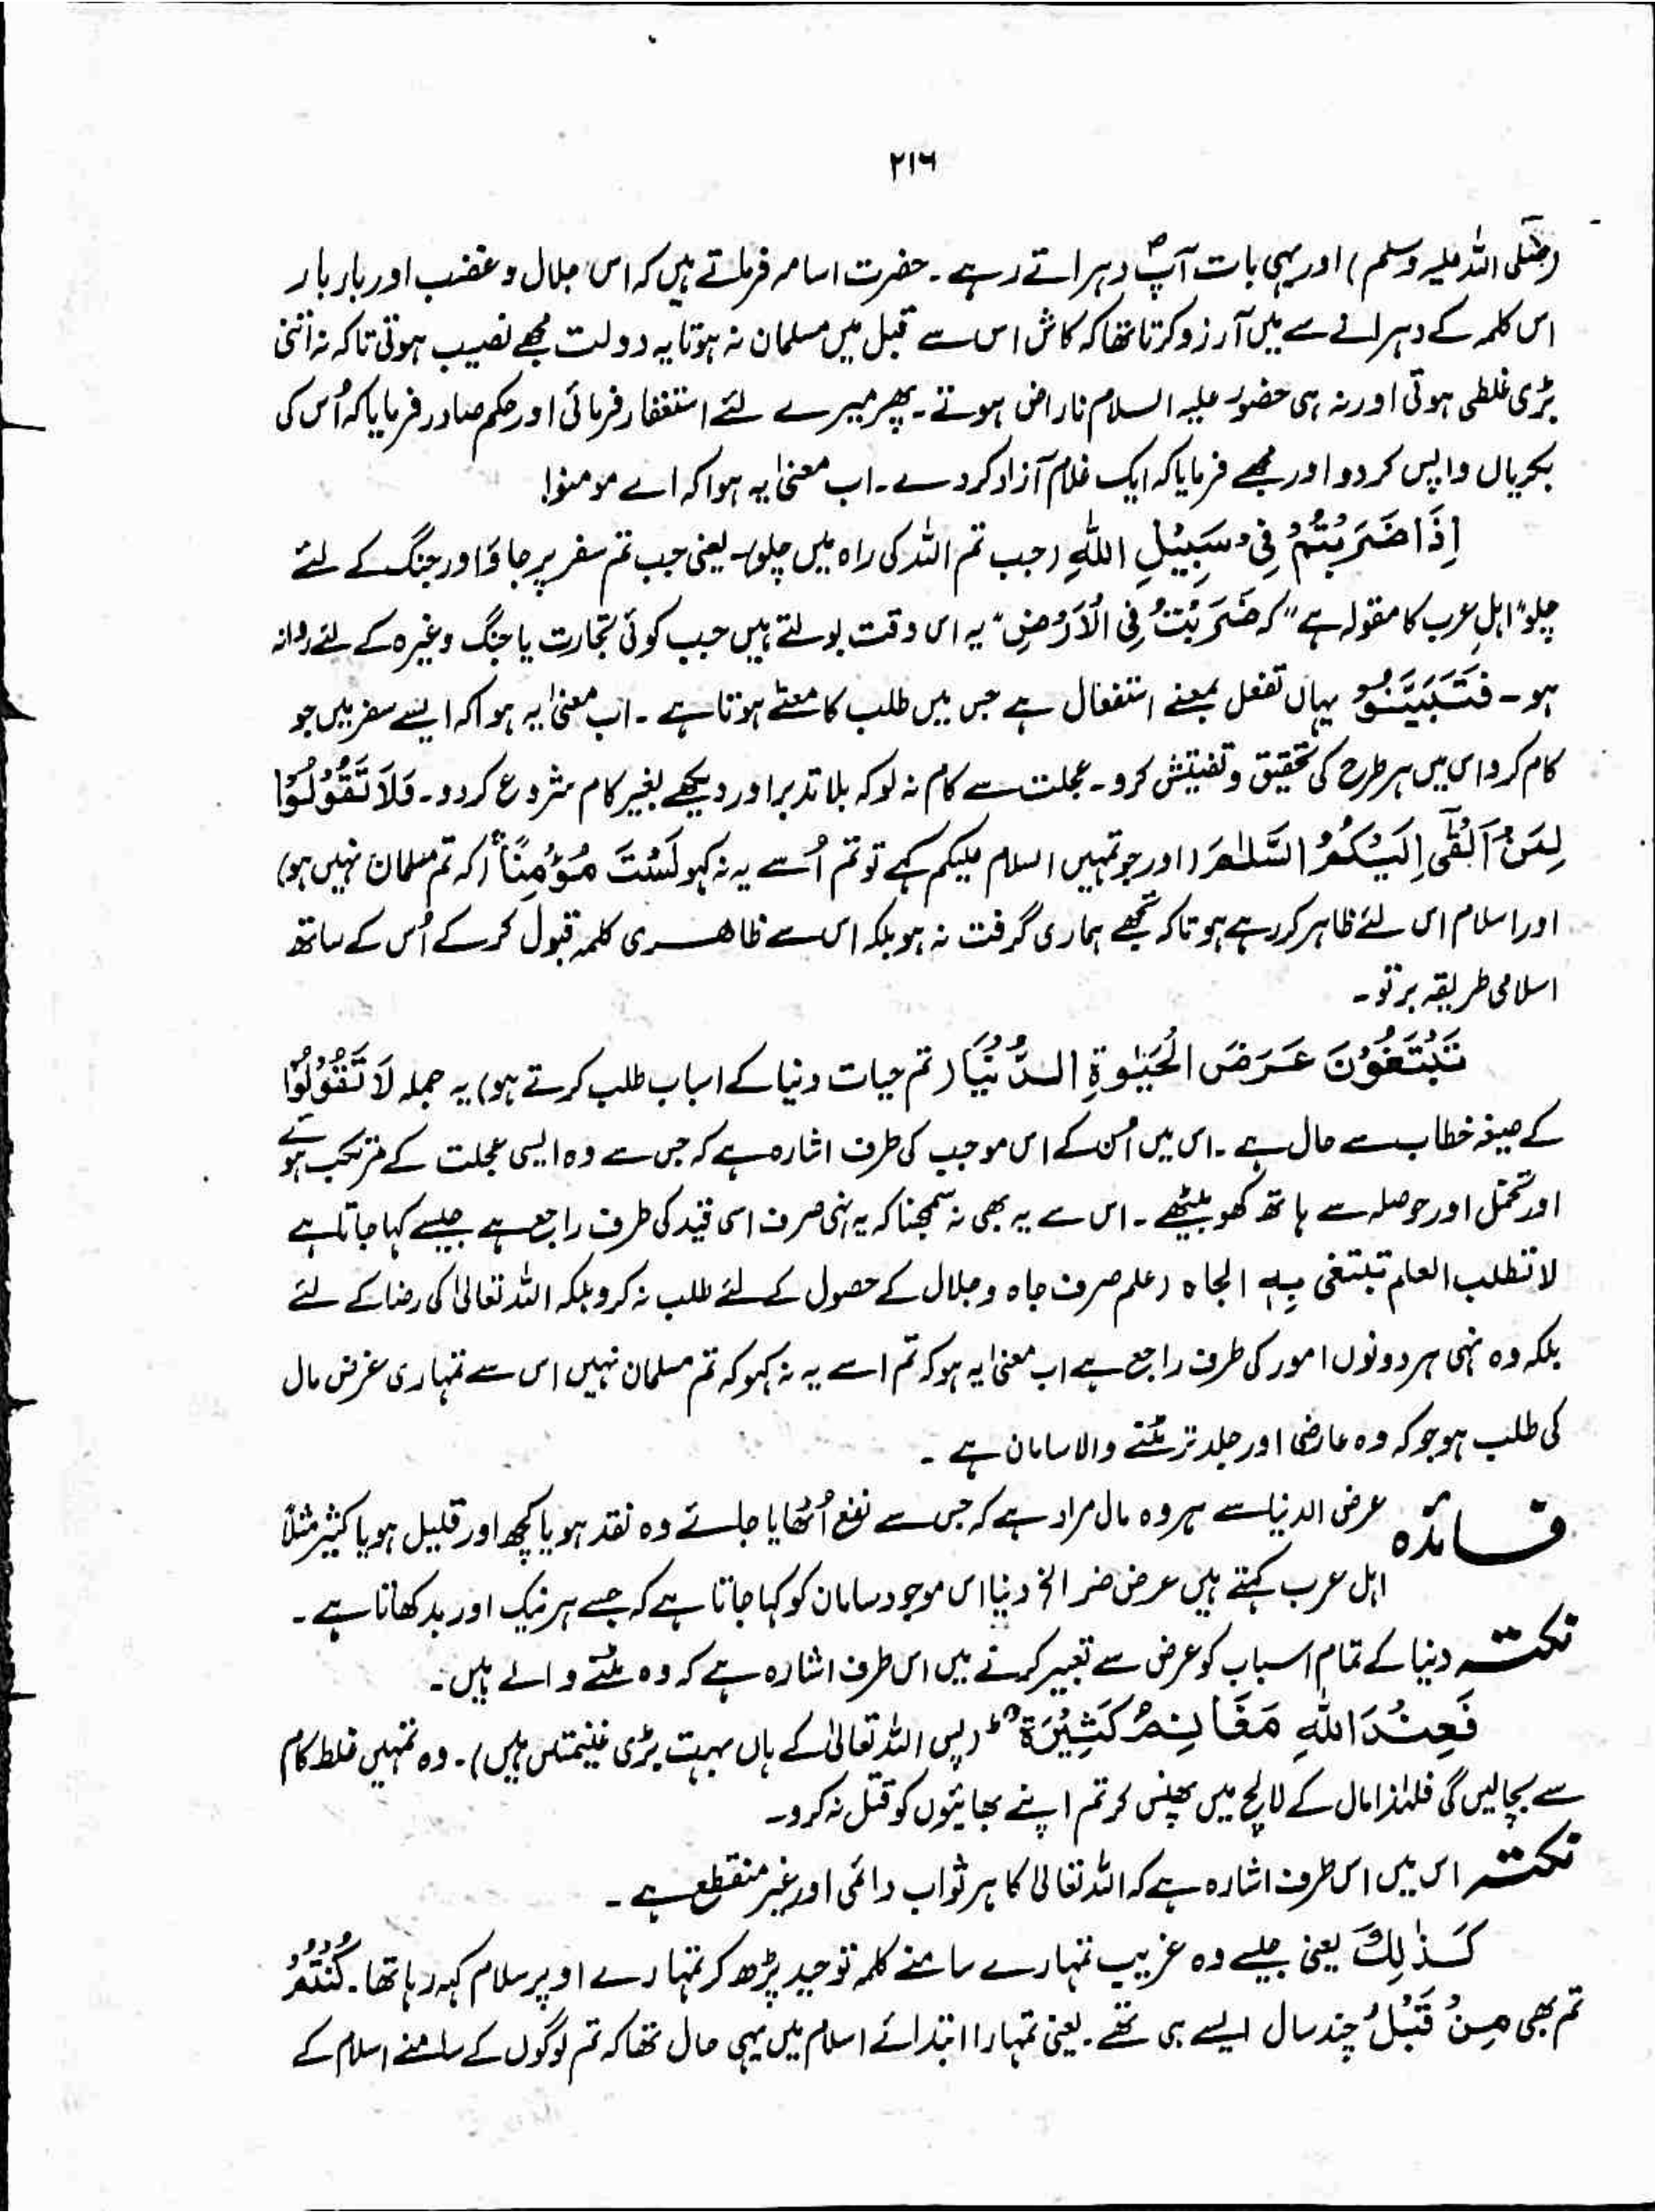 ۲۱۶
(صلی اللہ علیہ وسلم) اور یہی بات آپؐ دہراتے رہے ۔ حضرت اسامہ فرماتے ہیں کہ اس جلال و غضب اور بار بار
اس کلمہ کے دہرانے سے میں آرزو کرتا تھا کہ کاش اس سے قبل میں مسلمان نہ ہوتا یہ دولت مجھے نصیب ہوتی تاکہ نہ اتنی
بڑی غلطی ہوتی اور نہ ہی حضور علیہ السلام ناراض ہوتے ۔ پھر میرے لئے استغفار فرمائی اور حکم صادر فرمایا کہ اُس کی
بکریاں واپس کردو اور مجھے فرمایا کہ ایک غلام آزاد کردے ۔ اب معنیٰ یہ ہوا کہ اے مومنو!
اِذَا ضَرَبْتُمْ فِیْ سَبِیْلِ اللّٰہِ (جب تم اللہ کی راہ میں چلو) ۔ یعنی جب تم سفر پر جاؤ اور جنگ کے لئے
چلو" اہلِ عرب کا مقولہ ہے "کہ ضَرَبْتُ فِی الْاَرْضِ" یہ اس وقت بولتے ہیں جب کوئی تجارت یا جنگ وغیرہ کے لئے روانہ
ہو ۔ فَتَبَیَّنُوْ یہاں تفعل بمعنے استفعال ہے جس میں طلب کا معنٰے ہوتا ہے ۔ اب معنیٰ یہ ہوا کہ ایسے سفر میں جو
کام کرو اس میں ہر طرح کی تحقیق و تفتیش کرو ۔ عجلت سے کام نہ لو کہ بلا تدبر اور دیکھے بغیر کام شروع کردو ۔ وَلَا تَقُوْلُوْا
لِمَنْ اَلْقٰۤی اِلَیْکُمُ السَّلٰمَ (اور جو تمہیں السلام علیکم کہے تو تم اُسے یہ نہ کہو لَسْتَ مُؤْمِنًا ج (کہ تم مسلمان نہیں ہو)
اور اسلام اس لئے ظاہر کر رہے ہو تاکہ تجھے ہماری گرفت نہ ہو بلکہ اس سے ظاہری کلمہ قبول کرکے اُس کے ساتھ
اسلامی طریقہ برتو ۔
تَبْتَغُوْنَ عَرَضَ الْحَیٰوۃِ الدُّنْیَا (تم حیات دنیا کے اسباب طلب کرتے ہو) یہ جملہ لَا تَقُوْلُوْا
کے صیغہ خطاب سے حال ہے ۔ اس میں اُن کے اس موجب کی طرف اشارہ ہے کہ جس سے وہ ایسی عجلت کے مرتکب ہوئے
اور تحمّل اور حوصلہ سے ہاتھ کھو بیٹھے ۔ اس سے یہ بھی نہ سمجھنا کہ یہ نہی صرف اسی قید کی طرف راجع ہے جیسے کہا جاتا ہے
لا تطلب العلم تبتغی بِہٖ الجاہ (علم صرف جاہ و جلال کے حصول کے لئے طلب نہ کرو بلکہ اللہ تعالیٰ کی رضا کے لئے
بلکہ وہ نہی ہر دونوں امور کی طرف راجع ہے اب معنیٰ یہ ہو کہ تم اسے یہ نہ کہو کہ تم مسلمان نہیں اس سے تمہاری غرض مال
کی طلب ہو جو کہ وہ عارضی اور جلد تر مٹنے والا سامان ہے ۔
فائدہ عرض الدنیا سے ہر وہ مال مراد ہے کہ جس سے نفع اُٹھایا جائے وہ نقد ہو یا کچھ اور قلیل ہو یا کثیر مثلاً
اہل عرب کہتے ہیں عرض ضر الخ دنیا اس موجود سامان کو کہا جاتا ہے کہ جسے ہر نیک اور بد کھاتا ہے ۔
نکتہ دنیا کے تمام اسباب کو عرض سے تعبیر کرنے میں اس طرف اشارہ ہے کہ وہ مٹنے والے ہیں ۔
فَعِنْدَ اللّٰہِ مَغَانِمُ کَثِیْرَۃٌ ط (پس اللہ تعالیٰ کے ہاں بہت بڑی غنیمتیں ہیں) ۔ وہ تمہیں غلط کام
سے بچالیں گی فلہٰذا مال کے لالچ میں پھنس کر تم اپنے بھائیوں کو قتل نہ کرو ۔
نکتہ اس میں اس طرف اشارہ ہے کہ اللہ تعالیٰ کا ہر ثواب دائمی اور غیر منقطع ہے ۔
کَذٰلِکَ یعنی جیسے وہ غریب تمہارے سامنے کلمہ توحید پڑھ کر تمہارے اوپر سلام کہہ رہا تھا ۔ کُنْتُمْ
تم بھی مِنْ قَبْلُ چند سال ایسے ہی تھے ۔ یعنی تمہارا ابتدائے اسلام میں یہی حال تھا کہ تم لوگوں کے سامنے اسلام کے